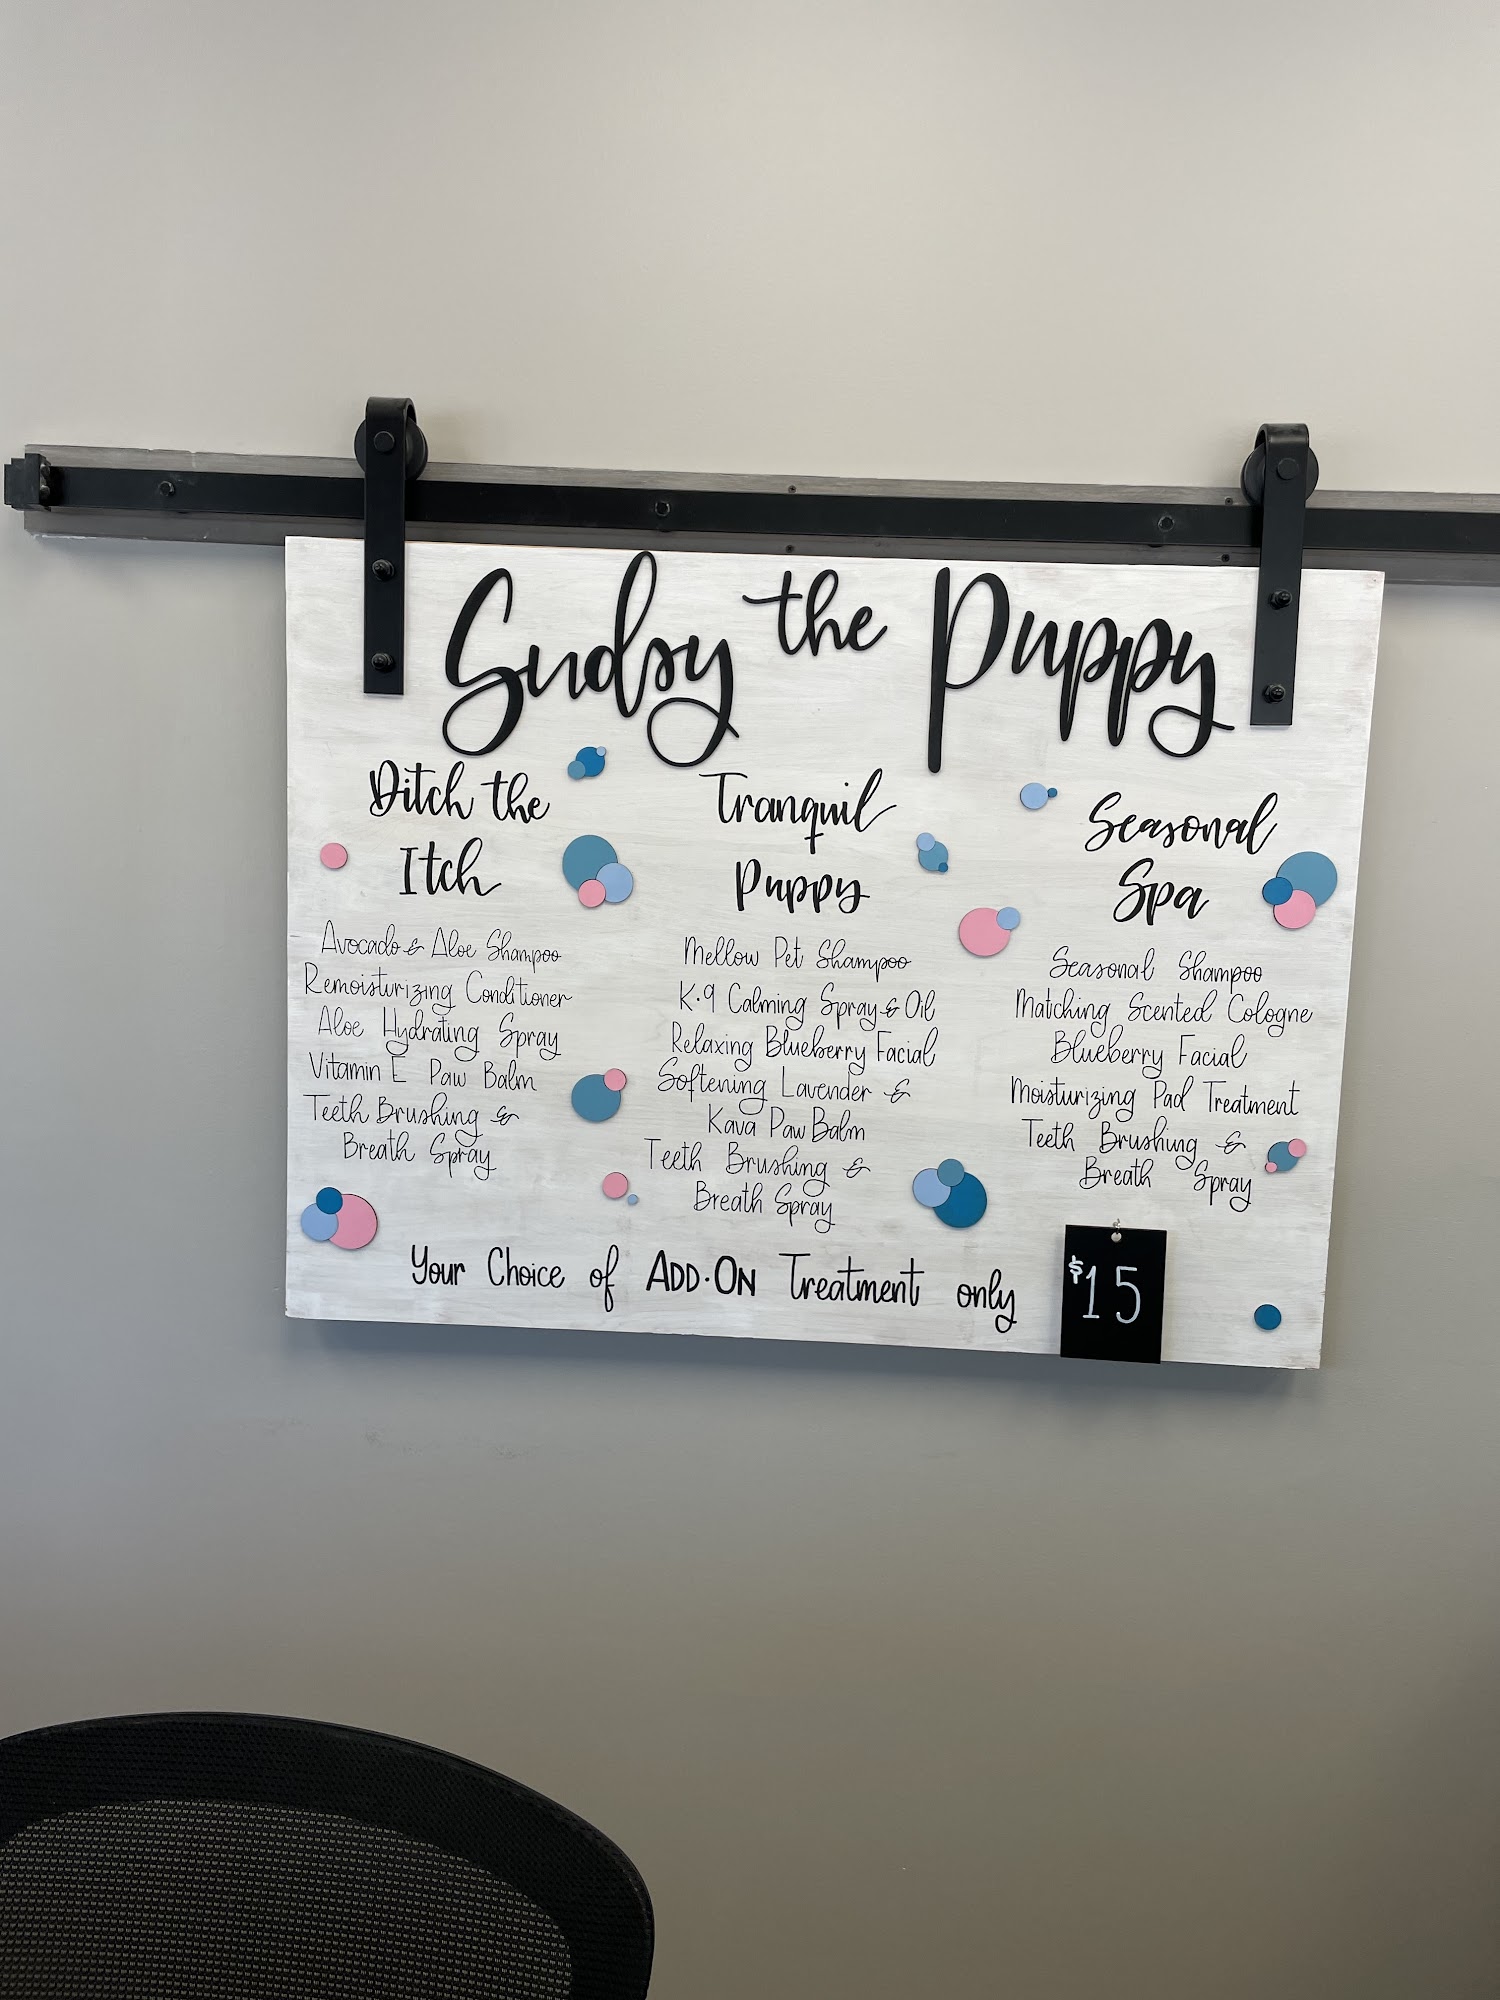 Sudsy the Puppy
Ditch the
Itch
Avocado & Aloe Shampoo
Remoisturizing Conditioner
Aloe Hydrating Spray
Vitamin E Paw Balm
Teeth Brushing &
Breath Spray
Tranquil
Puppy
Mellow Pet Shampoo
K·9 Calming Spray & Oil
Relaxing Blueberry Facial
Softening Lavender &
Kava Paw Balm
Teeth Brushing &
Breath Spray
Seasonal
Spa
Seasonal Shampoo
Matching Scented Cologne
Blueberry Facial
Moisturizing Pad Treatment
Teeth Brushing &
Breath Spray
Your Choice of ADD·ON Treatment only $15